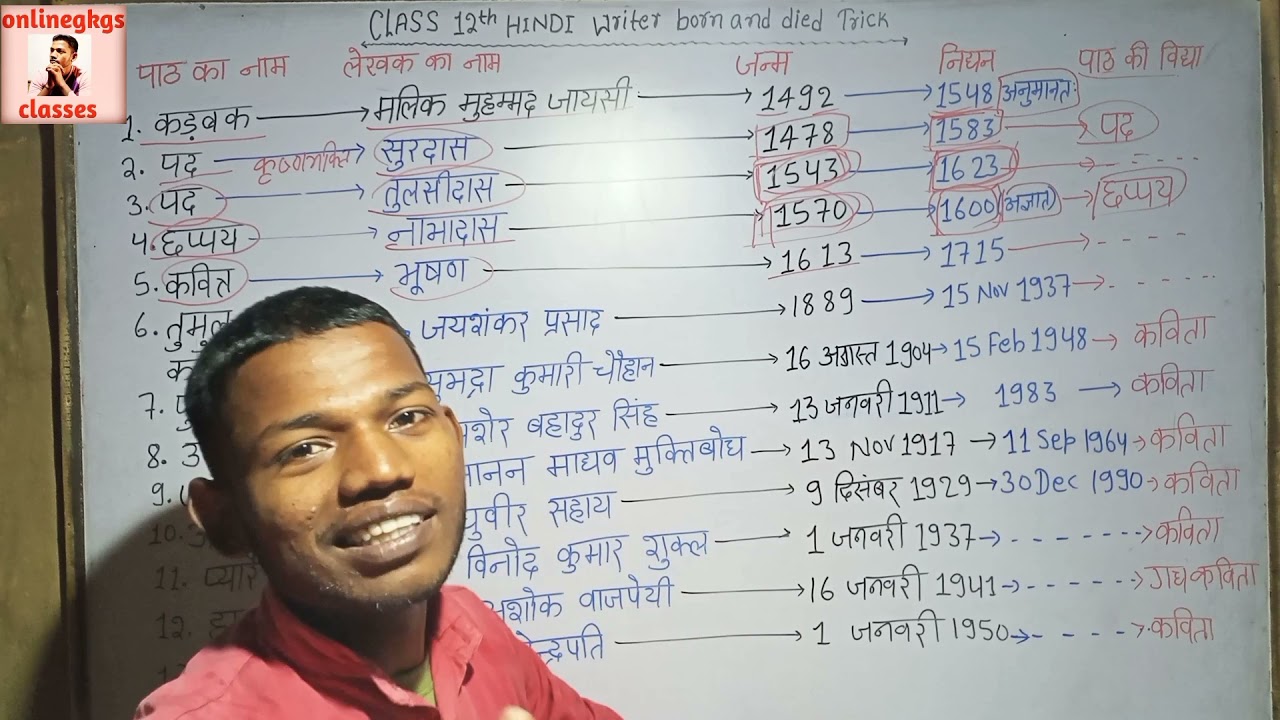 onlinegkgs
classes
CLASS 12th HINDI Writer born and died Trick
पाठ का नाम लेखक का नाम जन्म निधन पाठ की विद्या
1. कड़बक → मलिक मुहम्मद जायसी → 1492 → 1548 (अनुमानतः)
2. पद कृष्णभक्ति → सुरदास → 1478 → 1583 → पद
3. पद → तुलसीदास → 1543 → 1623 → - - - -
4. छप्पय → नाभादास → 1570 → 1600 (अज्ञात) → छप्पय
5. कवित्त → भूषण → 1613 → 1715 → - - - -
6. तुमुल जयशंकर प्रसाद → 1889 → 15 Nov 1937 → - - - -
क
7. कुमारी चौहान → 16 अगस्त 1904 → 15 Feb 1948 → कविता
8. बहादुर सिंह → 13 जनवरी 1911 → 1983 → कविता
9. माधव मुक्तिबोध → 13 Nov 1917 → 11 Sep 1964 → कविता
10. सहाय → 9 दिसंबर 1929 → 30 Dec 1990 → कविता
11. प्यारे विनोद कुमार शुक्ल → 1 जनवरी 1937 → - - - - → कविता
12. अशोक वाजपेयी → 16 जनवरी 1941 → - - - - → गद्यकविता
न्द्रपति → 1 जनवरी 1950 → - - - - → कविता